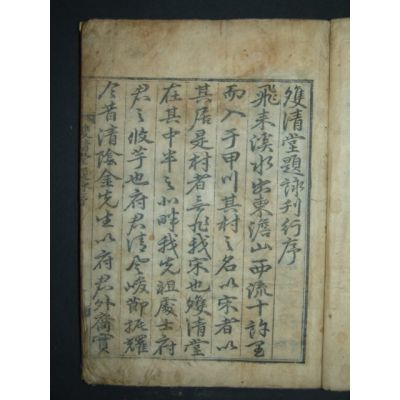 雙清堂題詠刊行序
飛来溪水出東澹山西流十許里
而入于甲川其村之名以宋者以
其居是村者无非我宋也雙清堂
在其中半之北畔我先祖處士府
君之攸芋也府君清風峻節振耀
今昔清陰金先生以府君外裔實